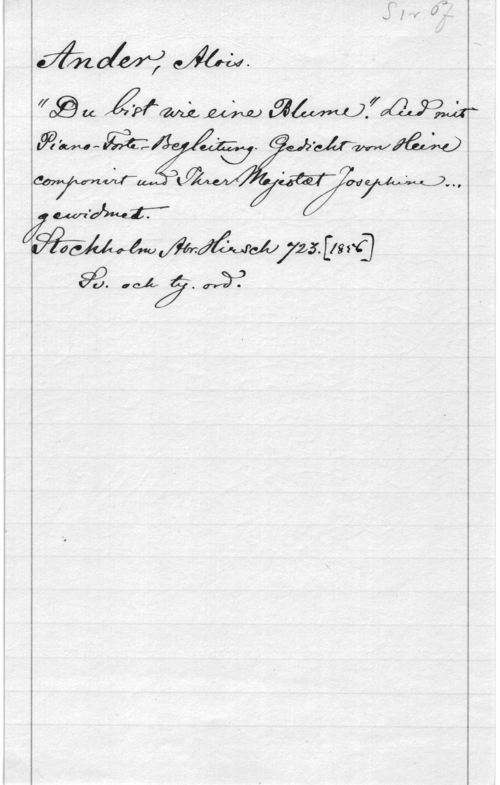 S1r 67
Ander, Alois.
"Du bist wie eine Blume". Lied mit
Piano-Forte-Begleitung. Gedicht von Heine
componirt und Ihrer Majestæt Josephine...
gewidmet.
Stockholm Abr. Hirsch 723. [1856]
Sv. och ty. ord.